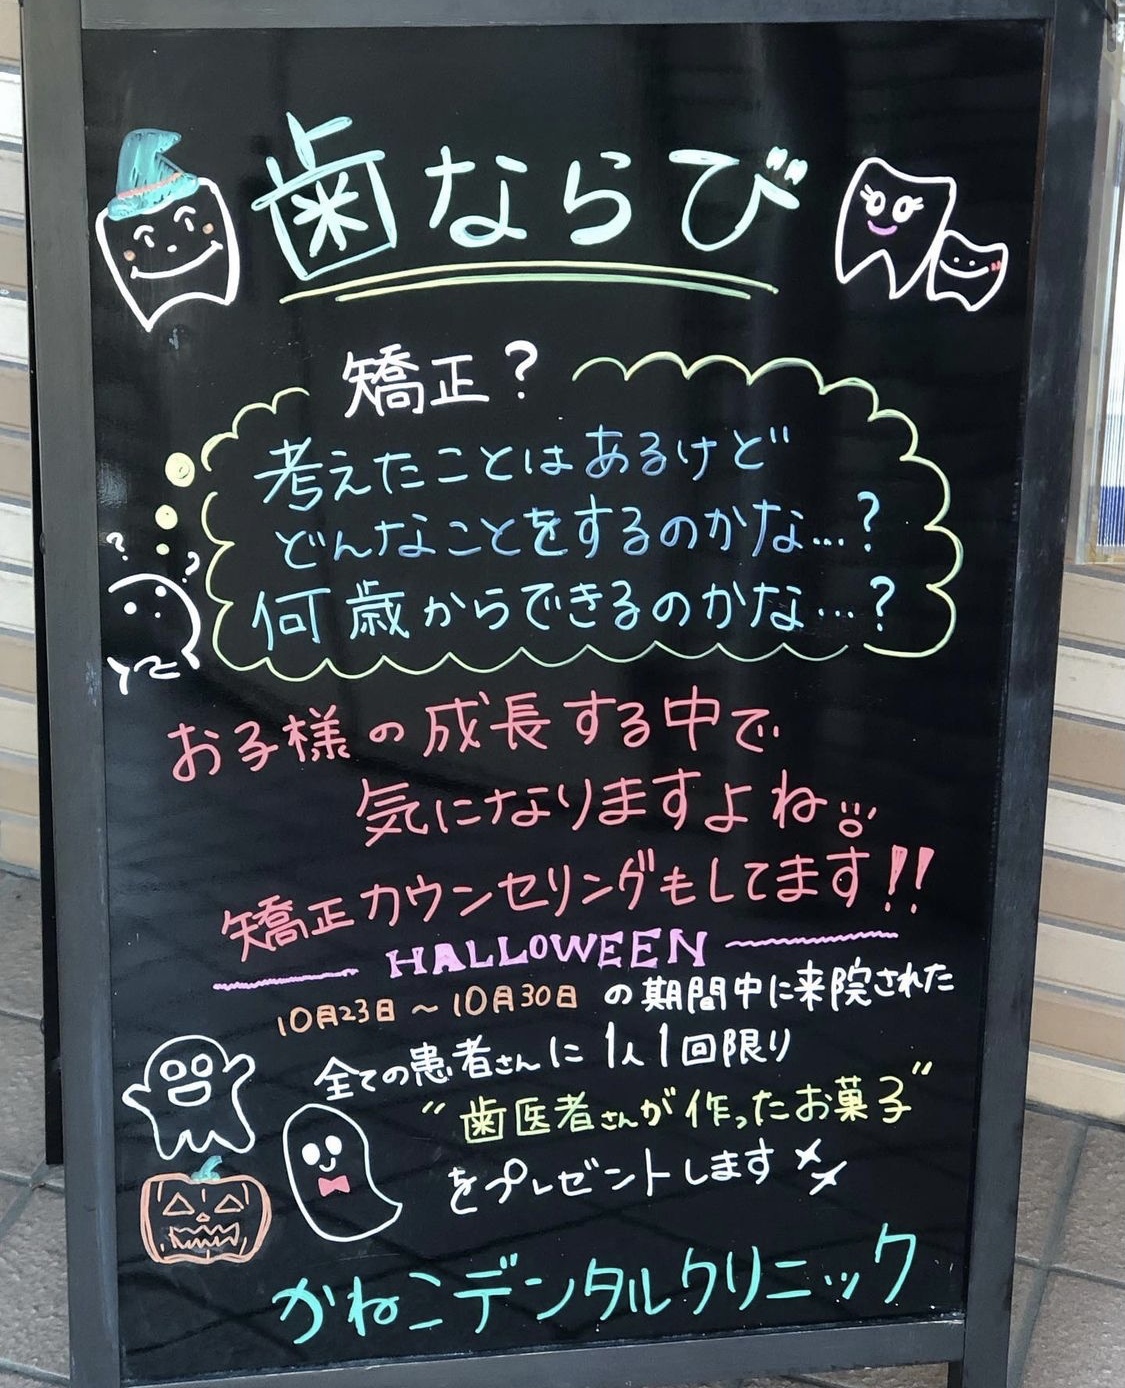 歯ならび
矯正?
考えたことはあるけど
どんなことをするのかな…?
何歳からできるのかな…?
お子様の成長する中で
気になりますよね
矯正カウンセリングもしてます!!
HALLOWEEN
10月23日~10月30日の期間中に来院された
全ての患者さんに1人1回限り
"歯医者さんが作ったお菓子"
をプレゼントします
かねこデンタルクリニック